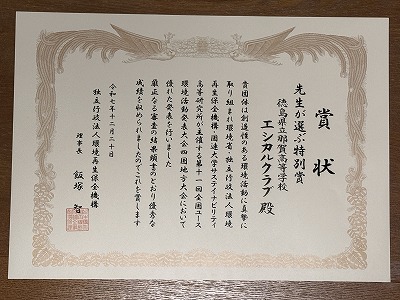 賞状
先生が選ぶ特別賞
徳島県立那賀高等学校
エシカルクラブ 殿
貴団体は創造性のある環境活動に真摯に
取り組まれ環境省・独立行政法人環境
再生保全機構・国連大学サステイナビリティ
高等研究所が主催する第十一回全国ユース
環境活動発表大会四国地方大会において
優れた発表を行いました
厳正なる審査の結果頭書のとおり優秀な
成績を収められましたのでこれを賞します
令和七年十二月二十日
独立行政法人環境再生保全機構
理事長 飯塚 智